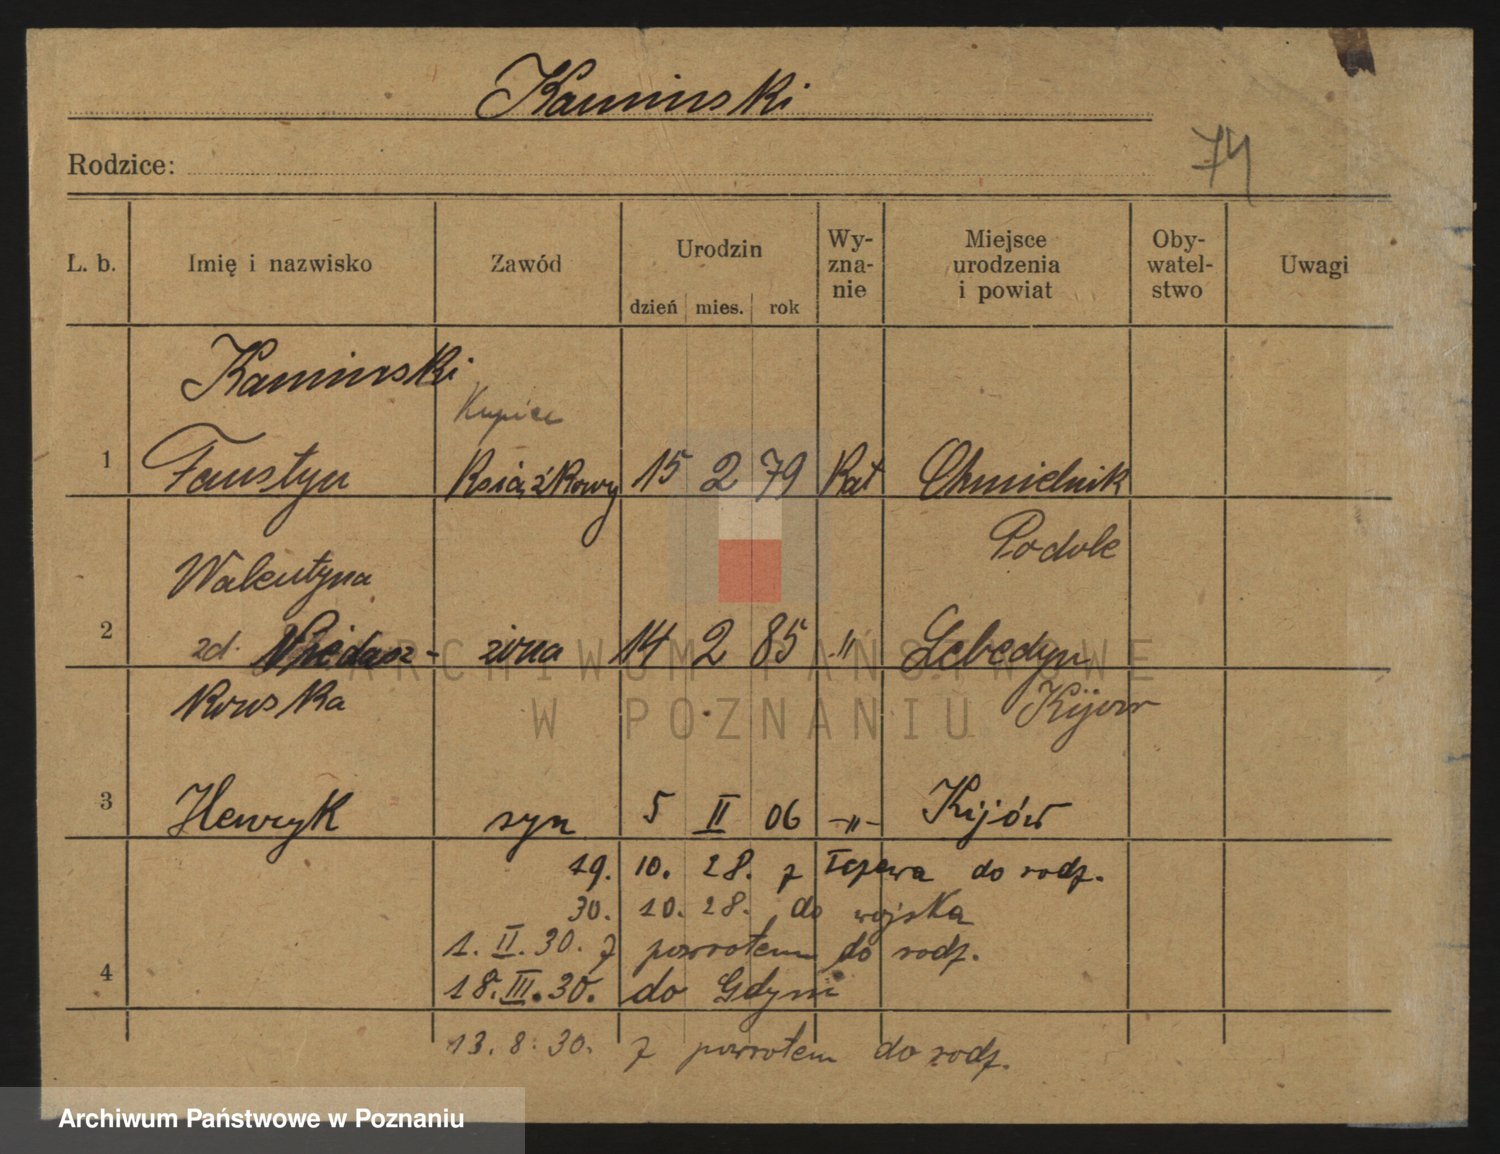 Kaminski
74
Rodzice:
L. b. Imię i nazwisko Zawód Urodzin Wy-zna-nie Miejsce urodzenia i powiat Oby-watel-stwo Uwagi
dzień mies. rok
Kaminski
Kupiec
1 Faustyn Książkowy 15 2 79 Kat Chmielnik
Podole
Walentyna
2 zd. żona 14 2 85 -"- Lebedyn
Kijow
3 Henryk syn 5 II 06 -"- Kijów
19. 10. 28. z Tczewa do rodz.
30. 10. 28. do wojska
1. II. 30. z powrotem do rodz.
4 18. III. 30. do Gdyni
13. 8. 30. z powrotem do rodz.
ARCHIWUM PAŃSTWOWE
W POZNANIU
Archiwum Państwowe w Poznaniu